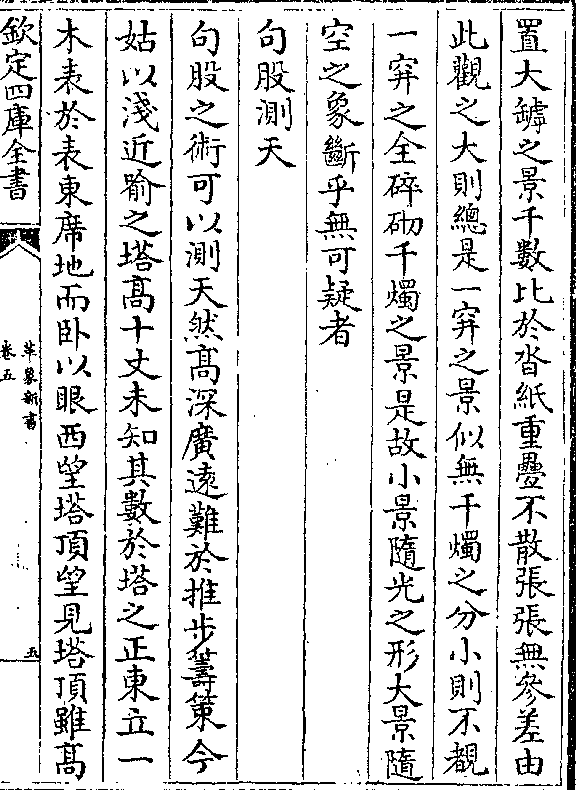 置大罅之景千數比於沓紙重疊不散張張無參差由
此觀之大則總是一穽之景似無千燭之分小則不覩
一穽之全碎砌千燭之景是故小景隨光之形大景隨
空之象斷乎無可疑者
句股測天
句股之術可以測天然髙深廣遠難於推步籌策今
姑以淺近喻之塔髙十丈未知其數於塔之正東立一
木表於表東席地而卧以眼西望塔頂望見塔頂雖髙
欽定四庫全書
革象新書
卷五
五